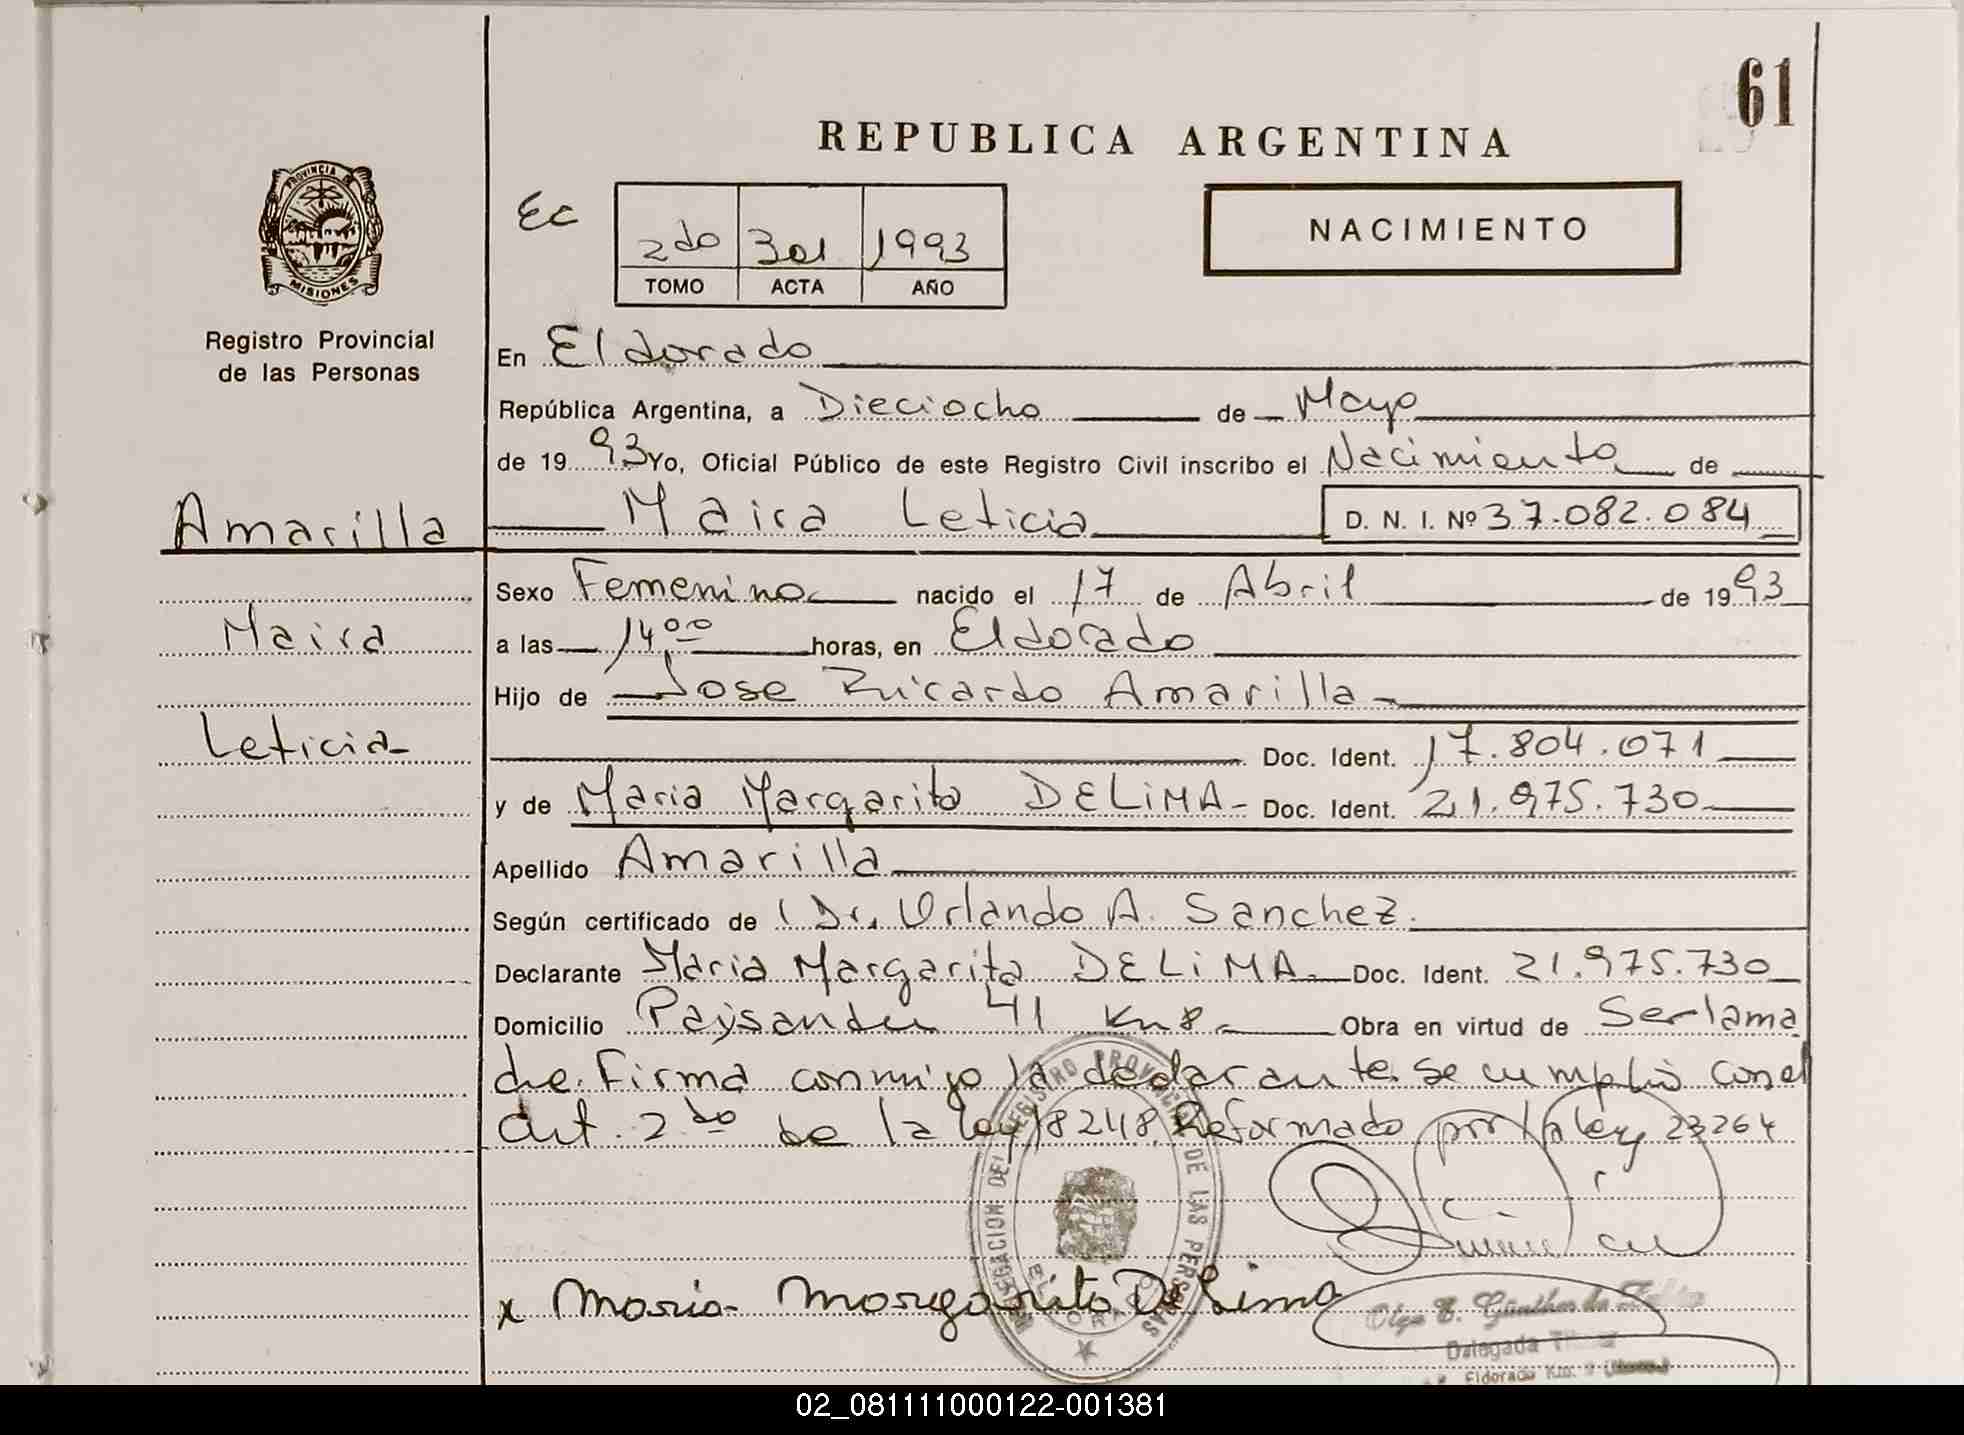 61
REPUBLICA ARGENTINA
PROVINCIA DE
MISIONES
Registro Provincial
de las Personas
Ec
2do 301 1993
TOMO ACTA AÑO
NACIMIENTO
En Eldorado
República Argentina, a Dieciocho de Mayo
de 1993 Yo, Oficial Público de este Registro Civil inscribo el Nacimiento de
Amarilla
Maira Leticia D. N. I. Nº 37.082.084
Sexo Femenino nacido el 17 de Abril de 1993
Maira
a las 14,00 horas, en Eldorado
Hijo de Jose Ricardo Amarilla
Leticia
Doc. Ident. 17.804.071
y de Maria Margarita DELIMA Doc. Ident. 21.975.730
Apellido Amarilla
Según certificado de Dr. Orlando A. Sanchez.
Declarante Maria Margarita DELIMA Doc. Ident. 21.975.730
Domicilio Paysandu 41 Km 8 Obra en virtud de Ser la ma
dre. Firma conmigo la declarante. Se cumplió con el
Art. 2do de la ley 18248. Reformado por la ley 23264
DELEGACION DEL REGISTRO PROVINCIAL DE LAS PERSONAS
ELDORADO
x Maria Margarita De Lima
Olga E. Günther de
Delegada Titular
Eldorado Km. 9
02_081111000122-001381